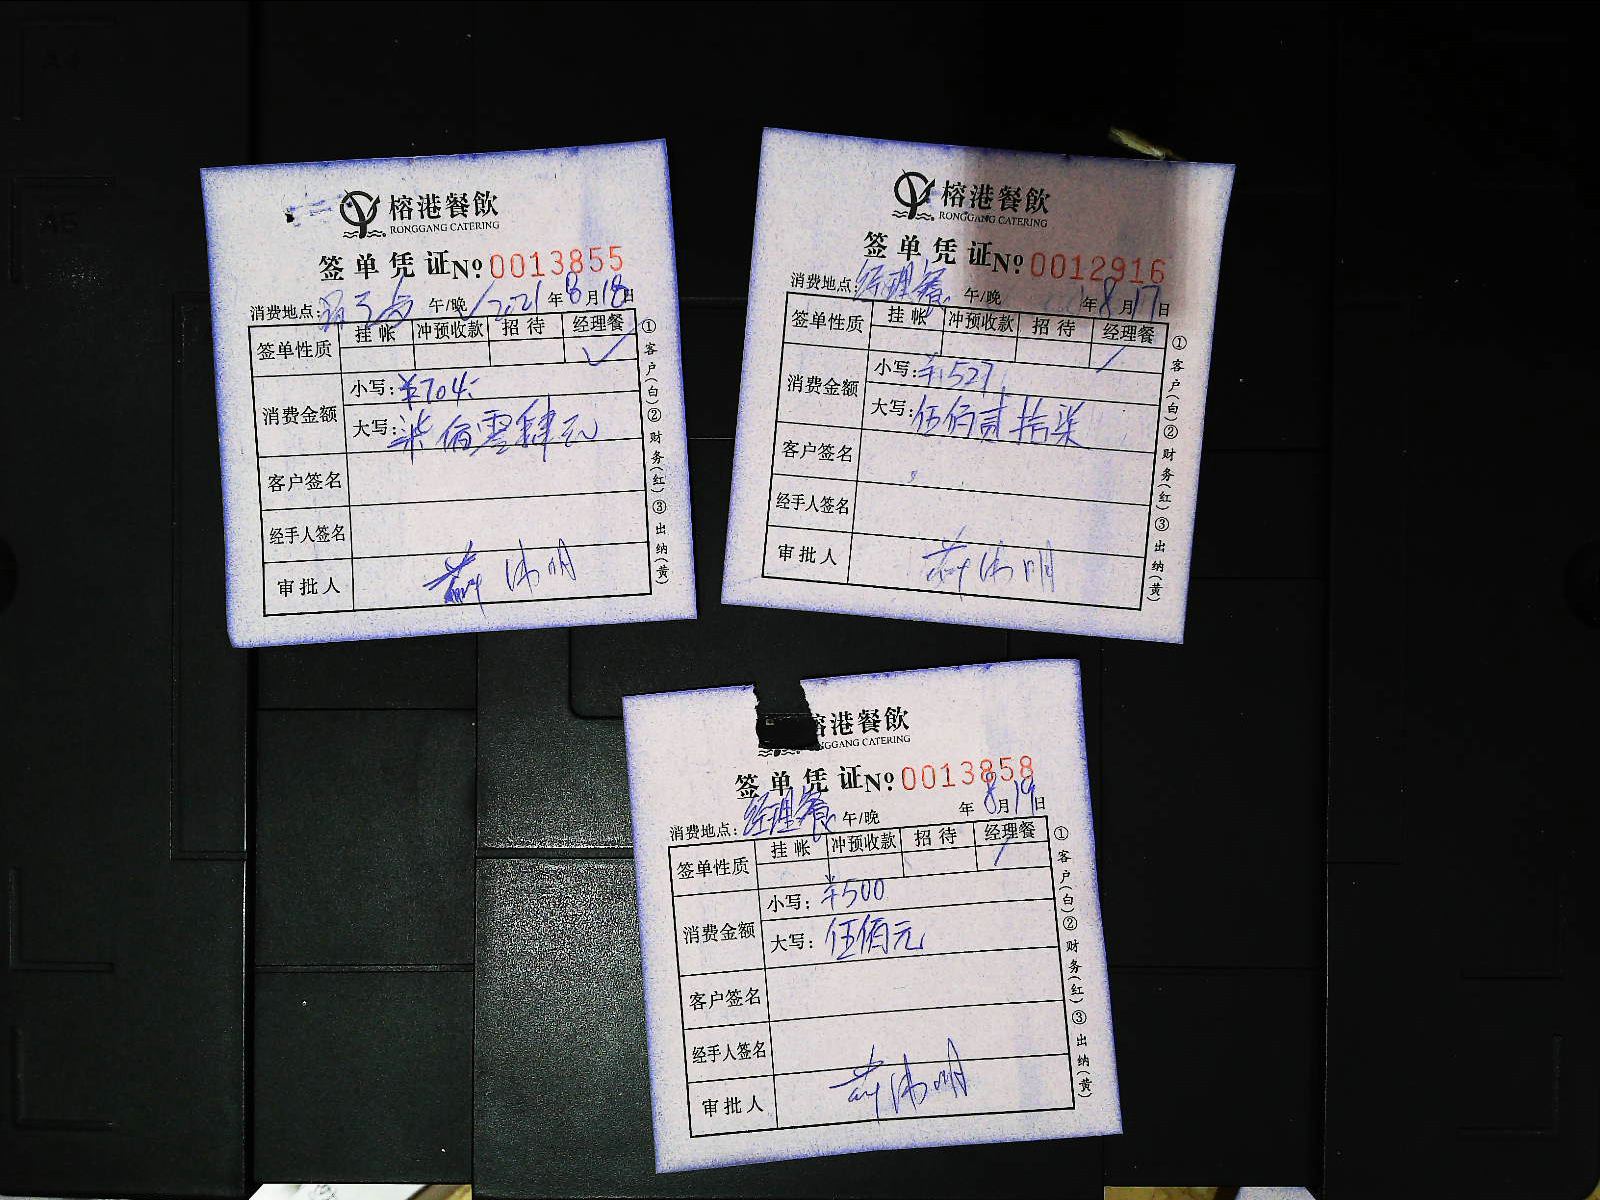 榕港餐飲
RONGGANG CATERING
签单凭证№0013855
消费地点: 午/晚 2021年8月18日
签单性质 挂帐 冲预收款 招待 经理餐
✓
消费金额 小写:¥704.
大写:柒佰零肆元
客户签名
经手人签名
审批人
①客户(白)②财务(红)③出纳(黄)
榕港餐飲
RONGGANG CATERING
签单凭证№0012916
消费地点:经理餐 午/晚 年8月17日
签单性质 挂帐 冲预收款 招待 经理餐
消费金额 小写:¥527.
大写:伍佰贰拾柒
客户签名
经手人签名
审批人
①客户(白)②财务(红)③出纳(黄)
港餐飲
GGANG CATERING
签单凭证№0013858
消费地点:经理餐 午/晚 年8月19日
签单性质 挂帐 冲预收款 招待 经理餐
消费金额 小写:¥500
大写:伍佰元
客户签名
经手人签名
审批人
①客户(白)②财务(红)③出纳(黄)